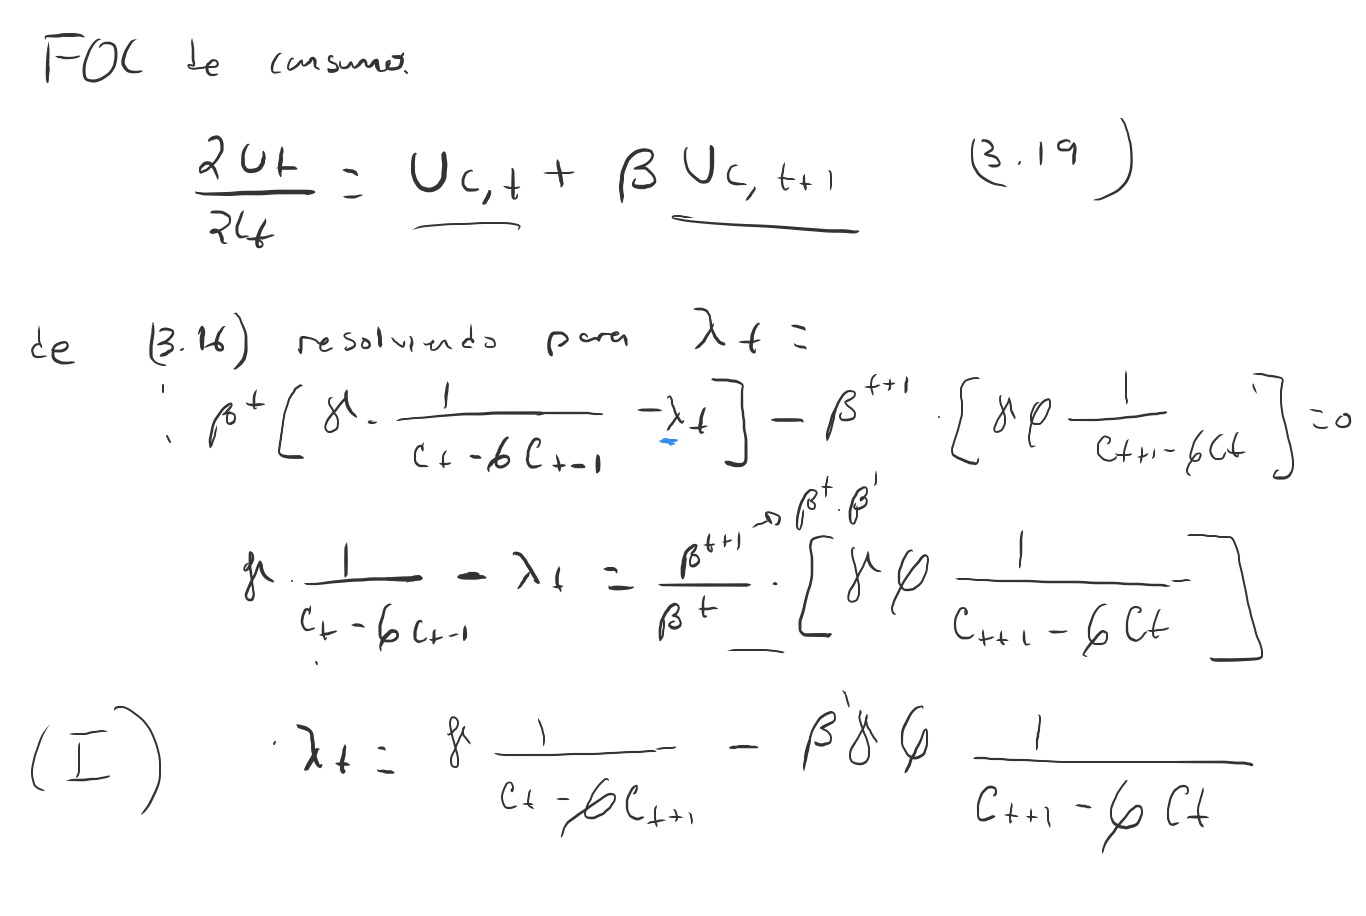 FOC de consumo.
∂Ut/∂Ct = Uc,t + β Uc,t+1 (3.19)
de (3.16) resolviendo para λt =
β^t [γ · 1/(Ct - φCt-1) - λt] - β^t+1 · [γφ 1/(Ct+1 - φCt)] = 0
γ · 1/(Ct - φCt-1) - λt = β^t+1/β^t · [γφ 1/(Ct+1 - φCt)] → β^t · β^1
(I) λt = γ 1/(Ct - φCt+1) - β^1 γφ 1/(Ct+1 - φCt)